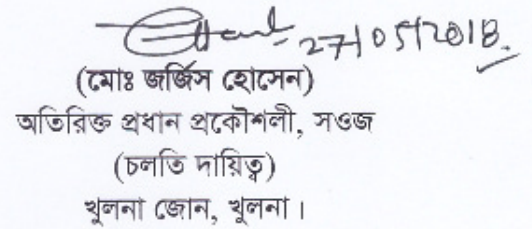 27/05/2018.
(মোঃ জর্জিস হোসেন)
অতিরিক্ত প্রধান প্রকৌশলী, সওজ
(চলতি দায়িত্ব)
খুলনা জোন, খুলনা।